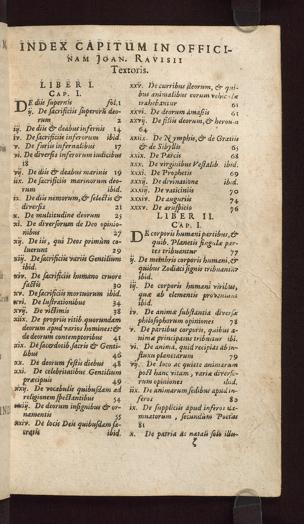 INDEX CAPITUM IN OFFICI-
NAM JOAN. RAVISII
Textoris.
LIBER I.
CAP. I.
DE diis supernis fol. 1
ij. De sacrificiis superorũ deo-
rum 2
iij. De diis & deabus infernis 14
iv. De sacrificiis inferorum ibid.
v. De furiis infernalibus 17
vi. De diversis inferorum iudicibus
18
vij. De diis & deabus marinis 19
iix. De sacrificiis marinorum deo-
rum ibid.
ix. De diis nemorum, & selectis &
diversis 21
x. De multitudine deorum 25
xi. De diversorum de Deo opinio-
nibus 27
xij. De iis, qui Deos primùm co-
luerunt 29
xiij. De sacrificiis variis Gentilium
ibid.
xiv. De sacrificiis humano cruore
factis 30
xv. De sacrificiis mortuorum ibid.
xvi. De lustrationibus 34
xvij. De victimis 38
xiix. De propriis ritib. quorundam
deorum apud varios homines: &
de deorum contemptoribus 41
xix. De sacerdotib. sacris & Genti-
libus 46
xx. De deorum festis diebus 48
xxi. De celebritatibus Gentilium
præcipuis 49
xxij. De vocabulis quibusdam ad
religionem spectantibus 54
xxiij. De deorum insignibus & or-
namentis 55
xxiv. De locis Deis quibusdam sa-
cratis ibid.
xxv. De curribus deorum, & qui-
bus animalibus eorum vehicula
trahebantur 61
xxvi. De deorum amasiis 61
xxvij. De filiis deorum, & heroum
64
xxiix. De Nymphis, & de Gratiis
& de Sibyllis 65
xxix. De Parcis 68
xxx. De virginibus Vestalib. ibid.
xxxi. De Prophetis 69
xxxij. De divinatione ibid.
xxxiij. De vaticiniis 70
xxxiv. De auguriis 74
xxxv. De aruspicio 76
LIBER II.
CAP. I.
DE corporis humani partibus, &
quib. Planetis singulæ par-
tes tribuantur 77
ij. De membris corporis humani, &
quibus Zodiaci signis tribuantur
ibid.
iij. De corporis humani virilus,
quæ ab elementis proveniunt
ibid.
iv. De animæ substantia diversæ
philosophorum opiniones 78
v. De partibus corporis, quibus a-
nimæ principatus tribuitur ibi.
vi. De anima, quid recipiat ab in-
fluxu planetarum 79
vij. De loco ac quiete animarum
post hanc vitam, varia diverso-
rum opiniones ibid.
iix. De animarum sedibus apud in-
feros 80
ix. De suppliciis apud inferos da-
mnatorum, secundùm Poëtas
81
x. De patria ac natali solo illu-